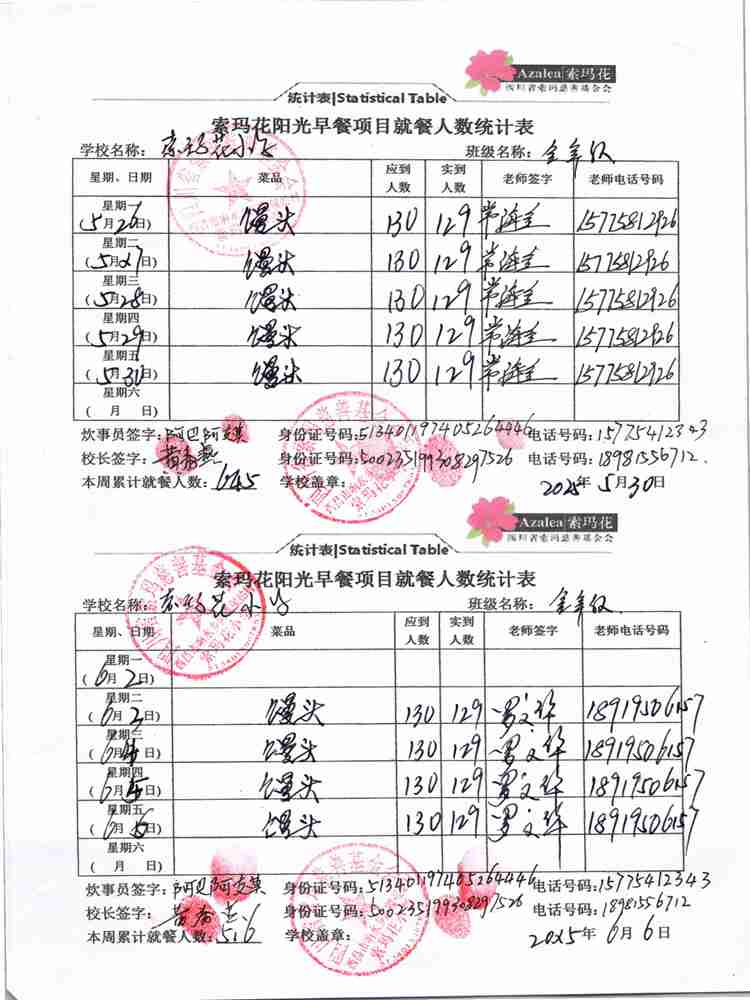 Azalea 索玛花
四川省索玛慈善基金会
统计表|Statistical Table
索玛花阳光早餐项目就餐人数统计表
学校名称：索玛花小学 班级名称：全年级
星期、日期 菜品 应到人数 实到人数 老师签字 老师电话号码
星期一
(5月26日) 馒头 130 129 15775812926
星期二
(5月27日) 馒头 130 129 15775812926
星期三
(5月28日) 馒头 130 129 15775812926
星期四
(5月29日) 馒头 130 129 15775812926
星期五
(5月30日) 馒头 130 129 15775812926
星期六
( 月 日)
炊事员签字： 身份证号码:513401197405264446 电话号码:15775412343
校长签字： 身份证号码:500235199308297526 电话号码:18981556712.
本周累计就餐人数：645 学校盖章： 2025年5月30日
Azalea 索玛花
四川省索玛慈善基金会
统计表|Statistical Table
索玛花阳光早餐项目就餐人数统计表
学校名称：索玛花小学 班级名称：全年级
星期、日期 菜品 应到人数 实到人数 老师签字 老师电话号码
星期一
(6月2日)
星期二
(6月3日) 馒头 130 129 罗文华 18919506157
星期三
(6月4日) 馒头 130 129 罗文华 18919506157
星期四
(6月5日) 馒头 130 129 罗文华 18919506157
星期五
(6月6日) 馒头 130 129 罗文华 18919506157
星期六
( 月 日)
炊事员签字： 身份证号码:513401197405264446 电话号码:15775412343
校长签字： 身份证号码:500235199308297526 电话号码:18981556712
本周累计就餐人数：516 学校盖章： 2025年6月6日